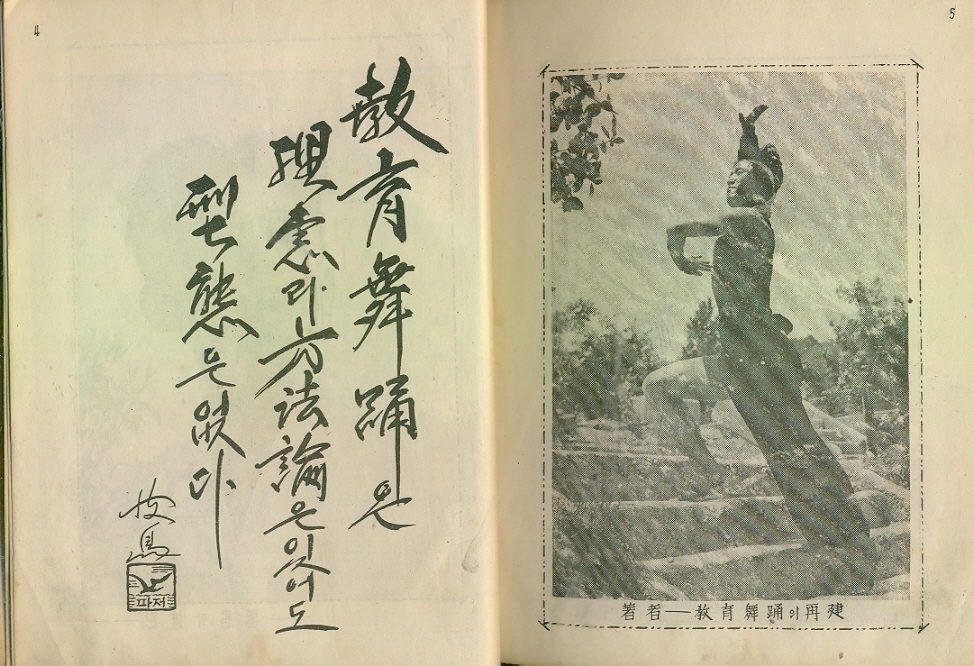 4
敎育舞踊은
理念과方法論은있어도
型態은없다
파저
5
著者―敎育舞踊의再建